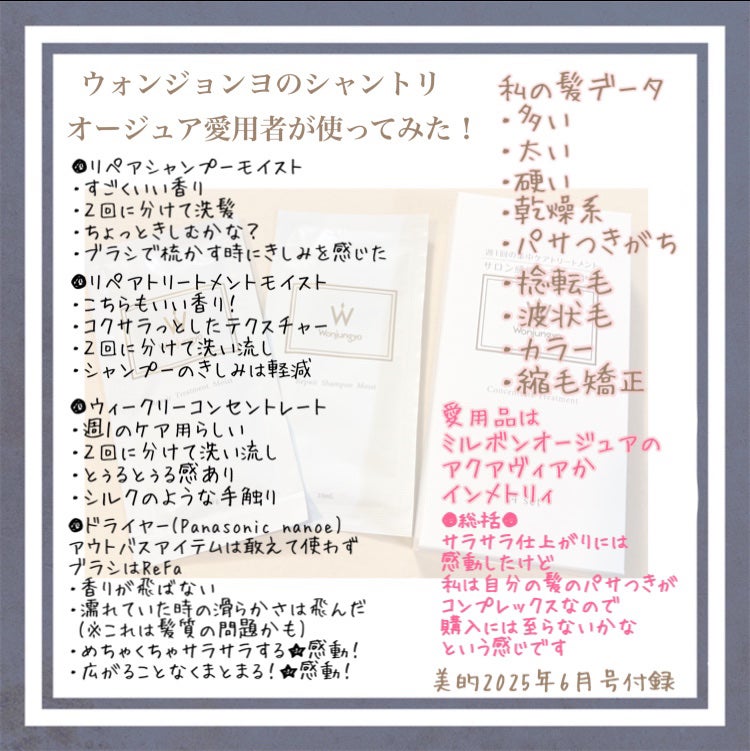 ウォンジョンヨのシャントリ
オージュア愛用者が使ってみた！
●リペアシャンプーモイスト
・すごくいい香り
・2回に分けて洗髪
・ちょっときしむかな？
・ブラシで梳かす時にきしみを感じた
●リペアトリートメントモイスト
・こちらもいい香り！
・コクサラっとしたテクスチャー
・2回に分けて洗い流し
・シャンプーのきしみは軽減
●ウィークリーコンセントレート
・週1のケア用らしい
・2回に分けて洗い流し
・とぅるとぅる感あり
・シルクのような手触り
●ドライヤー(Panasonic nanoe)
アウトバスアイテムは敢えて使わず
ブラシはReFa
・香りが飛ばない
・濡れていた時の滑らかさは飛んだ
(※これは髪質の問題かも)
・めちゃくちゃサラサラする★感動！
・広がることなくまとまる！★感動！
私の髪データ
・多い
・太い
・硬い
・乾燥系
・パサつきがち
・捻転毛
・波状毛
・カラー
・縮毛矯正
愛用品は
ミルボンオージュアの
アクアヴィアか
インメトリィ
●総括●
サラサラ仕上がりには
感動したけど
私は自分の髪のパサつきが
コンプレックスなので
購入には至らないかな
という感じです
美的2025年6月号付録
W
Wonjungyo
Repair Shampoo Moist
10mL
Treatment Moist
週1回の集中ケアトリートメント
サロン
Wonjungyo
Treatment